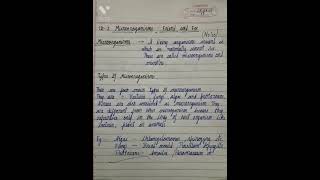 Ch-2 Microorganisms : Friend and Foe
Microorganisms :- A living organism
which
These are called microorganisms and
microbes
Types of Microorganisms
There are four major types of microorganisms
They are - Bacteria, fungi, algae and protozoan.
Viruses are also as microorganisms. They
are different from other microorganisms because they
reproduce only in the body of host organism like
bacteria, plant or animals
Eg Algae - Chlamydomonas, Spirogyra
Fungi - Bread mould, Penicillium, Aspergillus
Protozoan - Amoeba, Paramecium